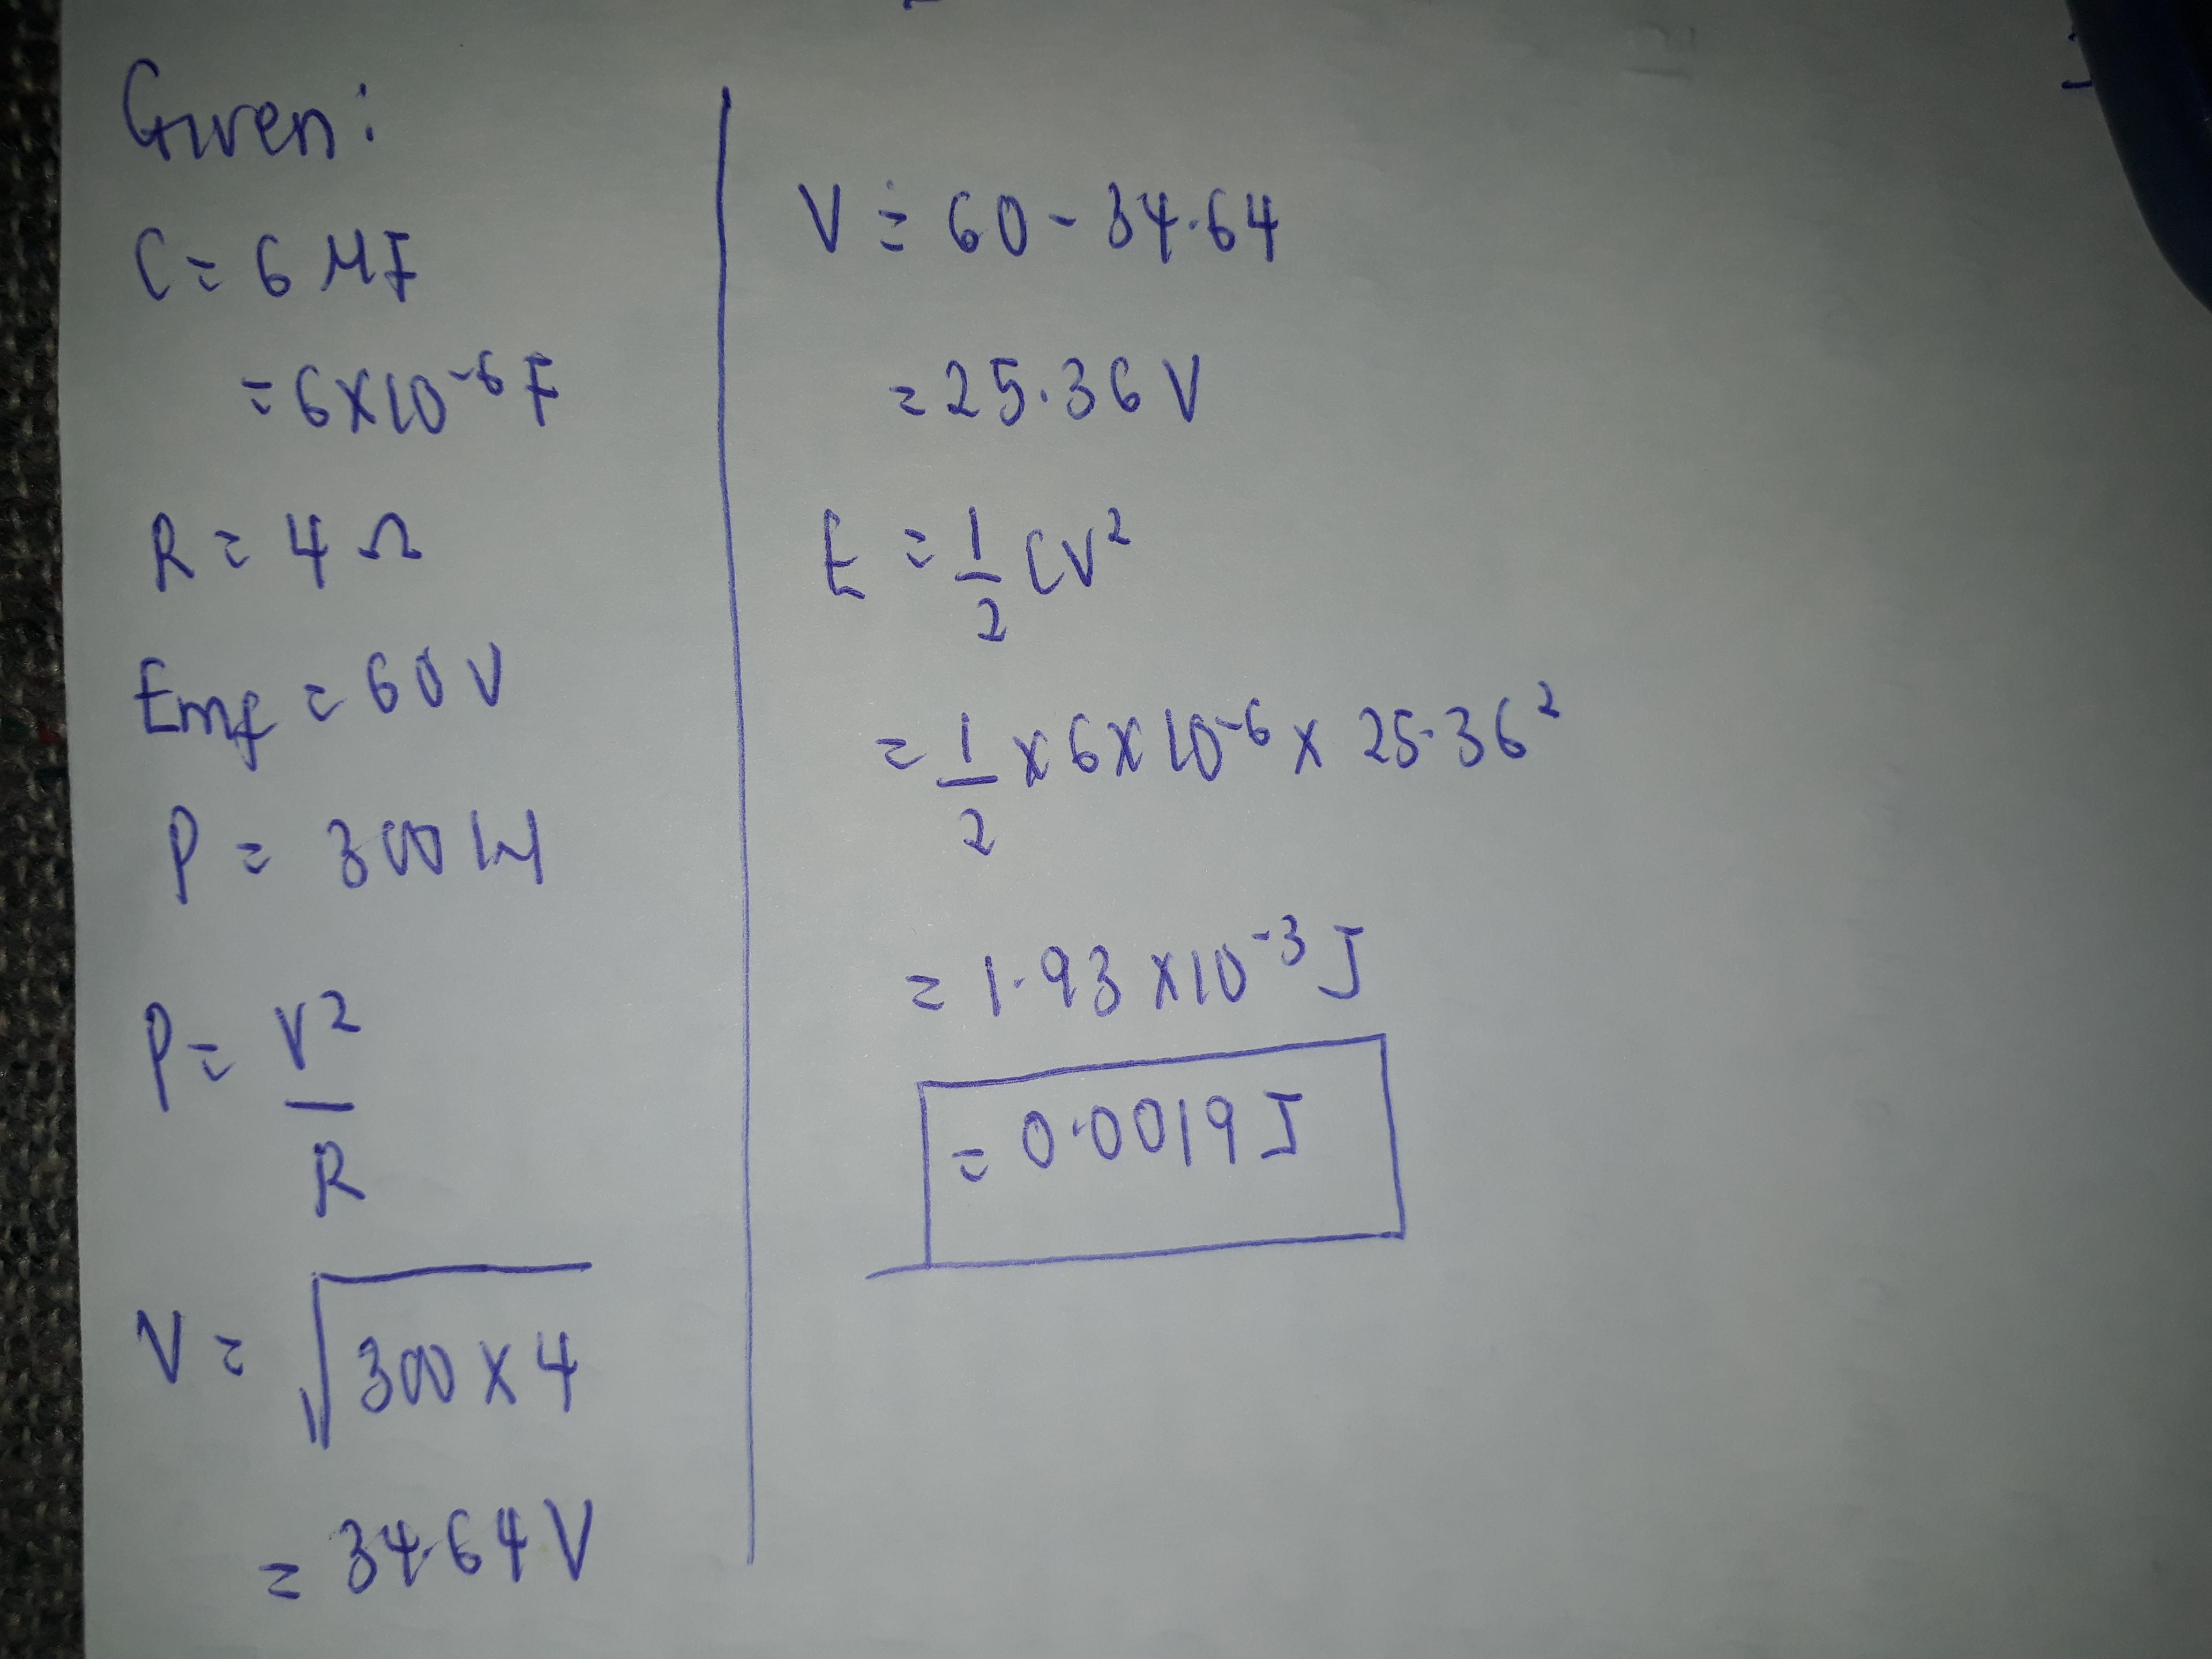 Given:
C = 6 μF
= 6×10⁻⁶ F
R = 4 Ω
Emf = 60 V
P = 300 W
P = V²
R
V = √300 × 4
= 34.64 V
V = 60 - 34.64
= 25.36 V
E = 1/2 CV²
= 1/2 × 6 × 10⁻⁶ × 25.36²
= 1.93 × 10⁻³ J
= 0.0019 J